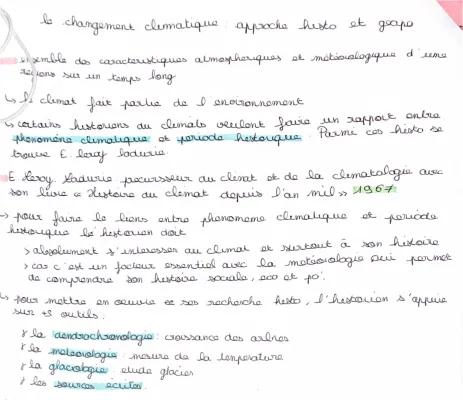 le changement climatique : approche histo et géopo
ensemble des caracteristiques atmospheriques et météorologique d'une
régions sur un temps long
↳ le climat fait partie de l'environnement
↳ certains historiens du climats veulent faire un rapport entre
phénomène climatique et periode historique. Parmi ces histo se
trouve E. leroy ladurie.
E. Leroy Ladurie precursseur du climat et de la climatologie avec
son livre « Histoire du climat depuis l'an mil » 1967
→ pour faire le liens entre phenomene climatique et periode
historique le historien doit
> absolument s'interesser au climat et surtout à son histoire
> car c'est un facteur essentiel avec la météorologie qui permet
de comprendre son histoire sociale, eco et po'.
↳ pour mettre en oeuvre ses recherche histo, l'historien s'appuie
sur +s outils :
la dendrochronologie : croissance des arbres
la meteorologie : mesure de la temperature
la glaciologie : etude glacier
les sources ecrites.